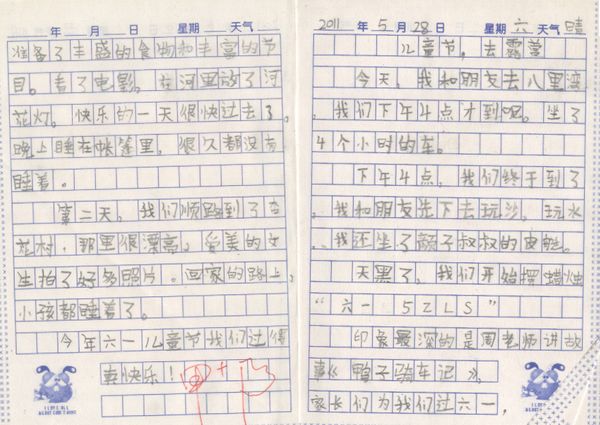 2011 年 5 月 28 日 星期 六 天气 晴
儿童节,去露营
今天,我和朋友去八里湾
,我们下午4点才到呢。坐了
4个小时的车。
下午4点,我们终于到了
,我和朋友先下去玩沙,玩水
,我还坐了颜子叔叔的皮艇。
天黑了,我们开始摆蜡烛
“六一 5ZLS”
印象最深的是周老师讲故
事《鸭子骑车记》,
家长们为我们过六一,
年 月 日 星期 天气
准备了丰盛的食物和丰富的节
目。看了电影。在河里放了河
花灯。快乐的一天很快过去了。
晚上睡在帐篷里,很久都没有
睡着。
第二天,我们顺路到了杏
花村,那里很漂亮,爱美的女
生拍了好多照片。回家的路上,
小孩都睡着了。
今年六一儿童节我们过得
真快乐!!